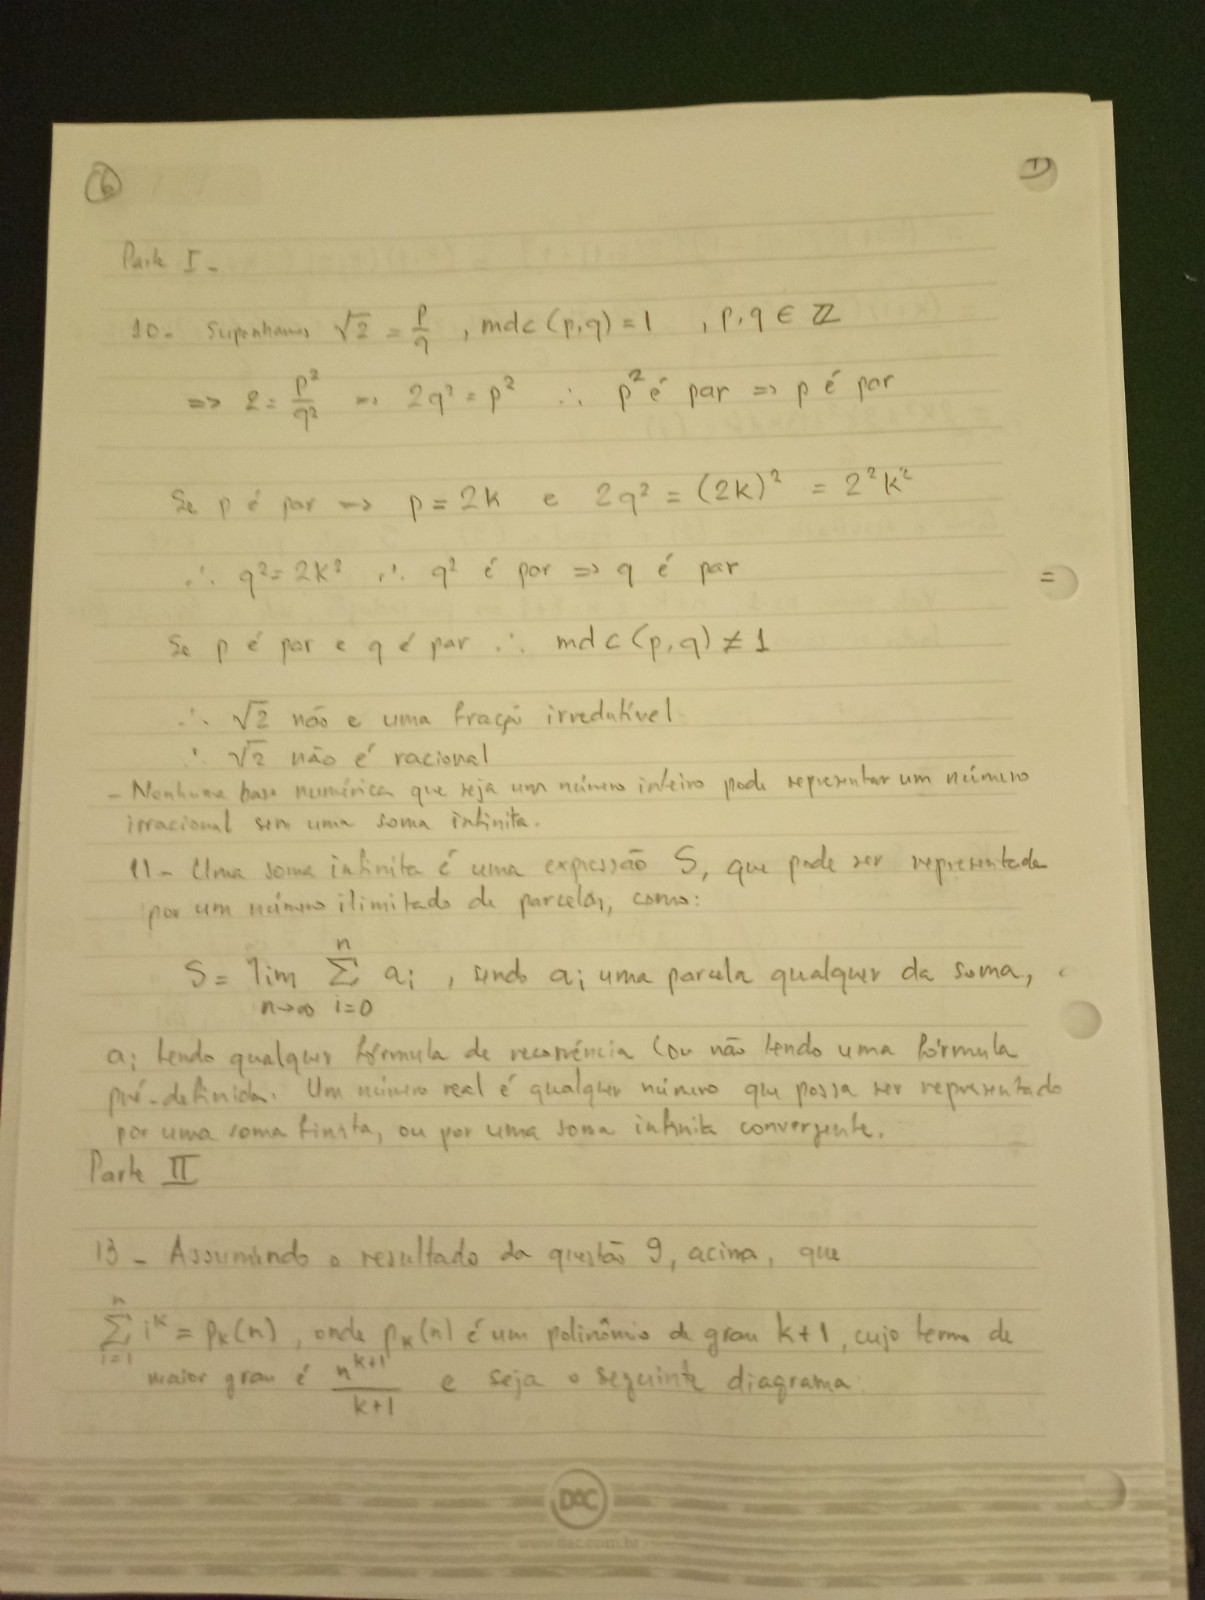 6
Parte I -
10 - Suponhamos √2 = p/q , mdc (p,q) = 1 , p,q ∈ ℤ
=> 2 = p²/q² => 2q² = p² ∴ p² é par => p é par
Se p é par => p = 2k e 2q² = (2k)² = 2²k²
∴ q² = 2k² ∴ q² é par => q é par
Se p é par e q é par ∴ mdc (p,q) ≠ 1
∴ √2 não e uma fração irredutível
∴ √2 não é racional
- Nenhuma base numérica que seja um número inteiro pode representar um número
irracional sem uma soma infinita.
11 - Uma soma infinita é uma expressão S, que pode ser representada
por um número ilimitado de parcelas, como:
S = lim n→∞ ∑ i=0 n aᵢ , sendo aᵢ uma parcela qualquer da soma,
aᵢ tendo qualquer fórmula de recorrência (ou não tendo uma fórmula
pré-definida. Um número real é qualquer número que possa ser representado
por uma soma finita, ou por uma soma infinita convergente.
Parte II
13 - Assumindo o resultado da questão 9, acima, que
∑ i=1 n iᵏ = pₖ(n) , onde pₖ(n) é um polinômio de grau k+1, cujo termo de
maior grau é nᵏ⁺¹/k+1 e seja o seguinte diagrama:
DAC
www.dac.com.br